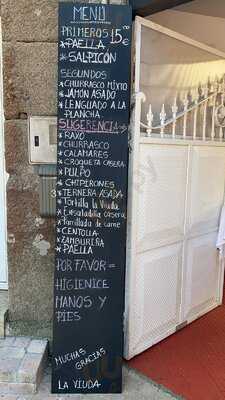 MENÚ
PRIMEROS 15€
*PAELLA
*SALPICÓN
SEGUNDOS
*CHURRASCO MIXTO
*JAMÓN ASADO
*LENGUADO A LA
PLANCHA
SUGERENCIA
*RAXO
*CHURRASCO
*CALAMARES
*CROQUETA CASERA
*PULPO
*CHIPIRONES
*TERNERA ASADA
*Tortilla la Viuda
*Ensaladilla casera
*Parrillada de carne
*CENTOLLA
*ZAMBURIÑA
*PAELLA
POR FAVOR =
HIGIENICE
MANOS Y
PIES
MUCHAS GRACIAS
LA VIUDA